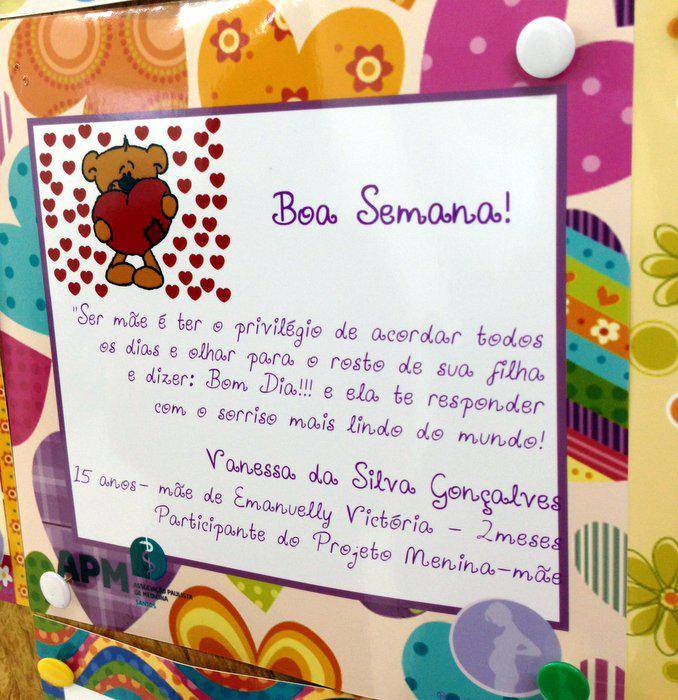 Boa Semana!
"Ser mãe é ter o privilégio de acordar todos
os dias e olhar para o rosto de sua filha
e dizer: Bom Dia!!! e ela te responder
com o sorriso mais lindo do mundo!
Vanessa da Silva Gonçalves
15 anos- mãe de Emanuelly Victória - 2meses
Participante do Projeto Menina-mãe
APM
ASSOCIAÇÃO PAULISTA
DE MEDICINA
SANTOS